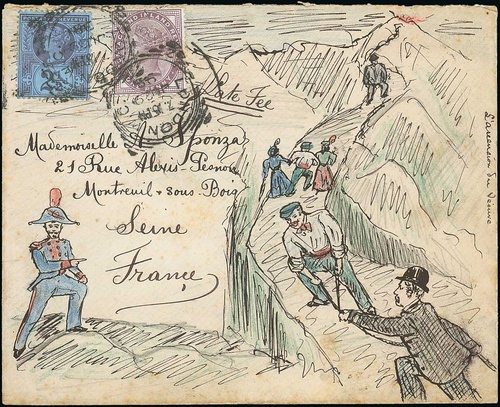 POSTAGE & INLAND REVENUE
LONDON
Late Fee
Mademoiselle A. Sponza
21 Rue Alexis-Pesnon
Montreuil-sous-Bois
Seine
France
L'ascension du Vésuve